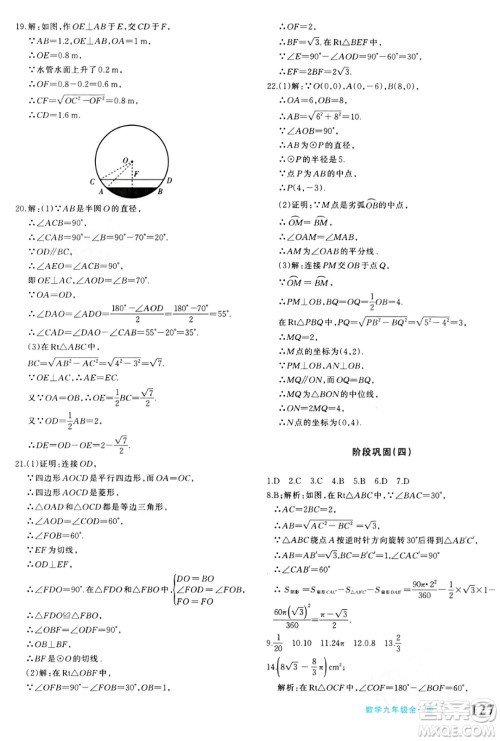 19.解:如图,作OE⊥AB于E,交CD于F,
∵AB=1.2,OE⊥AB,OA=1 m,
∴OE=0.8 m,
∵水管水面上升了0.2 m,
∴OF=0.8-0.2=0.6 m,
∴CF=√(OC²-OF²)=0.8 m,
∴CD=1.6 m.
O
C
D
F
A
B
E
20.解:(1)∵AB是半圆O的直径,
∴∠ACB=90°,
∴∠CAB=90°-∠B=90°-70°=20°.
∵OD∥BC,
∴∠AEO=∠ACB=90°,
即OE⊥AC,∠AOE=∠B=70°.
∵OA=OD,
∴∠DAO=∠ADO=(180°-∠AOD)/2=(180°-70°)/2=55°.
∴∠CAD=∠DAO-∠CAB=55°-20°=35°.
(3)在Rt△ABC中,
BC=√(AB²-AC²)=√(4²-3²)=√7.
∵OE⊥AC,∴AE=EC.
又∵OA=OB,∴OE=1/2BC=√7/2.
又∵OD=1/2AB=2,
∴DE=OD-OE=2-√7/2.
21.(1)证明:连接OD,
∵四边形AOCD是平行四边形,而OA=OC,
∴四边形AOCD是菱形,
∴△OAD和△OCD都是等边三角形,
∴∠AOD=∠COD=60°,
∴∠FOB=60°,
∵EF为切线,
∴OD⊥EF,∴∠FDO=90°,
在△FDO和△FBO中{OD=OB
∠FOD=∠FOB
FO=FO
∴△FDO≌△FBO,
∴∠ODF=∠OBF=90°,
∴OB⊥BF,
∴BF是⊙O的切线.
(2)解:在Rt△OBF中,
∵∠FOB=60°,
∴OB=1/2OF=1,
∴OF=2.
∴BF=√3.
∵在Rt△BOF中,
∠BOF=∠AOD=60°,
∴∠BFO=90°-60°=30°.
22.(1)解:∵O(0,0),A(0,6),B(8,0),
∴OA=6,OB=8,
∴AB=√(6²+8²)=10.
∵∠AOB=90°,
∴AB为⊙P的直径,
∴⊙P的半径是5.
∵点P为AB的中点,
∴P(4,3).
(2)证明:∵M点是劣弧OB的中点,
∴OM=BM,
∴∠OAM=∠MAB,
∴AM为∠OAB的平分线.
(3)解:连接PM交OB于点Q,
∵OM=BM,
∴PM⊥OB,BQ=OQ=1/2OB=4,
在Rt△PBQ中,PQ=√(PB²-BQ²)=√(5²-4²)=3,
∴MQ=2,
∴M点的坐标为(4,-2).
∵MQ⊥OB,ON⊥OB,
∴MQ∥ON,而BQ=OQ,
∴MQ为△BON的中位线,
∴ON=2MQ=4,
∴N点的坐标为(0,4).
阶段巩固(四)
8.B 解析:如图,在Rt△ABC中,
∴AC=2BC=2,
∴AB=√(AC²-BC²)=√3,
∴S阴影=S扇形CAC′-S△AB′C′-S扇形DAB′=90π•2²/360-1/2×1×√3-
60π(√3)²/360
9.1/20 10.10
14.(8√3-8/3π)cm²
数学九年级全一册 127